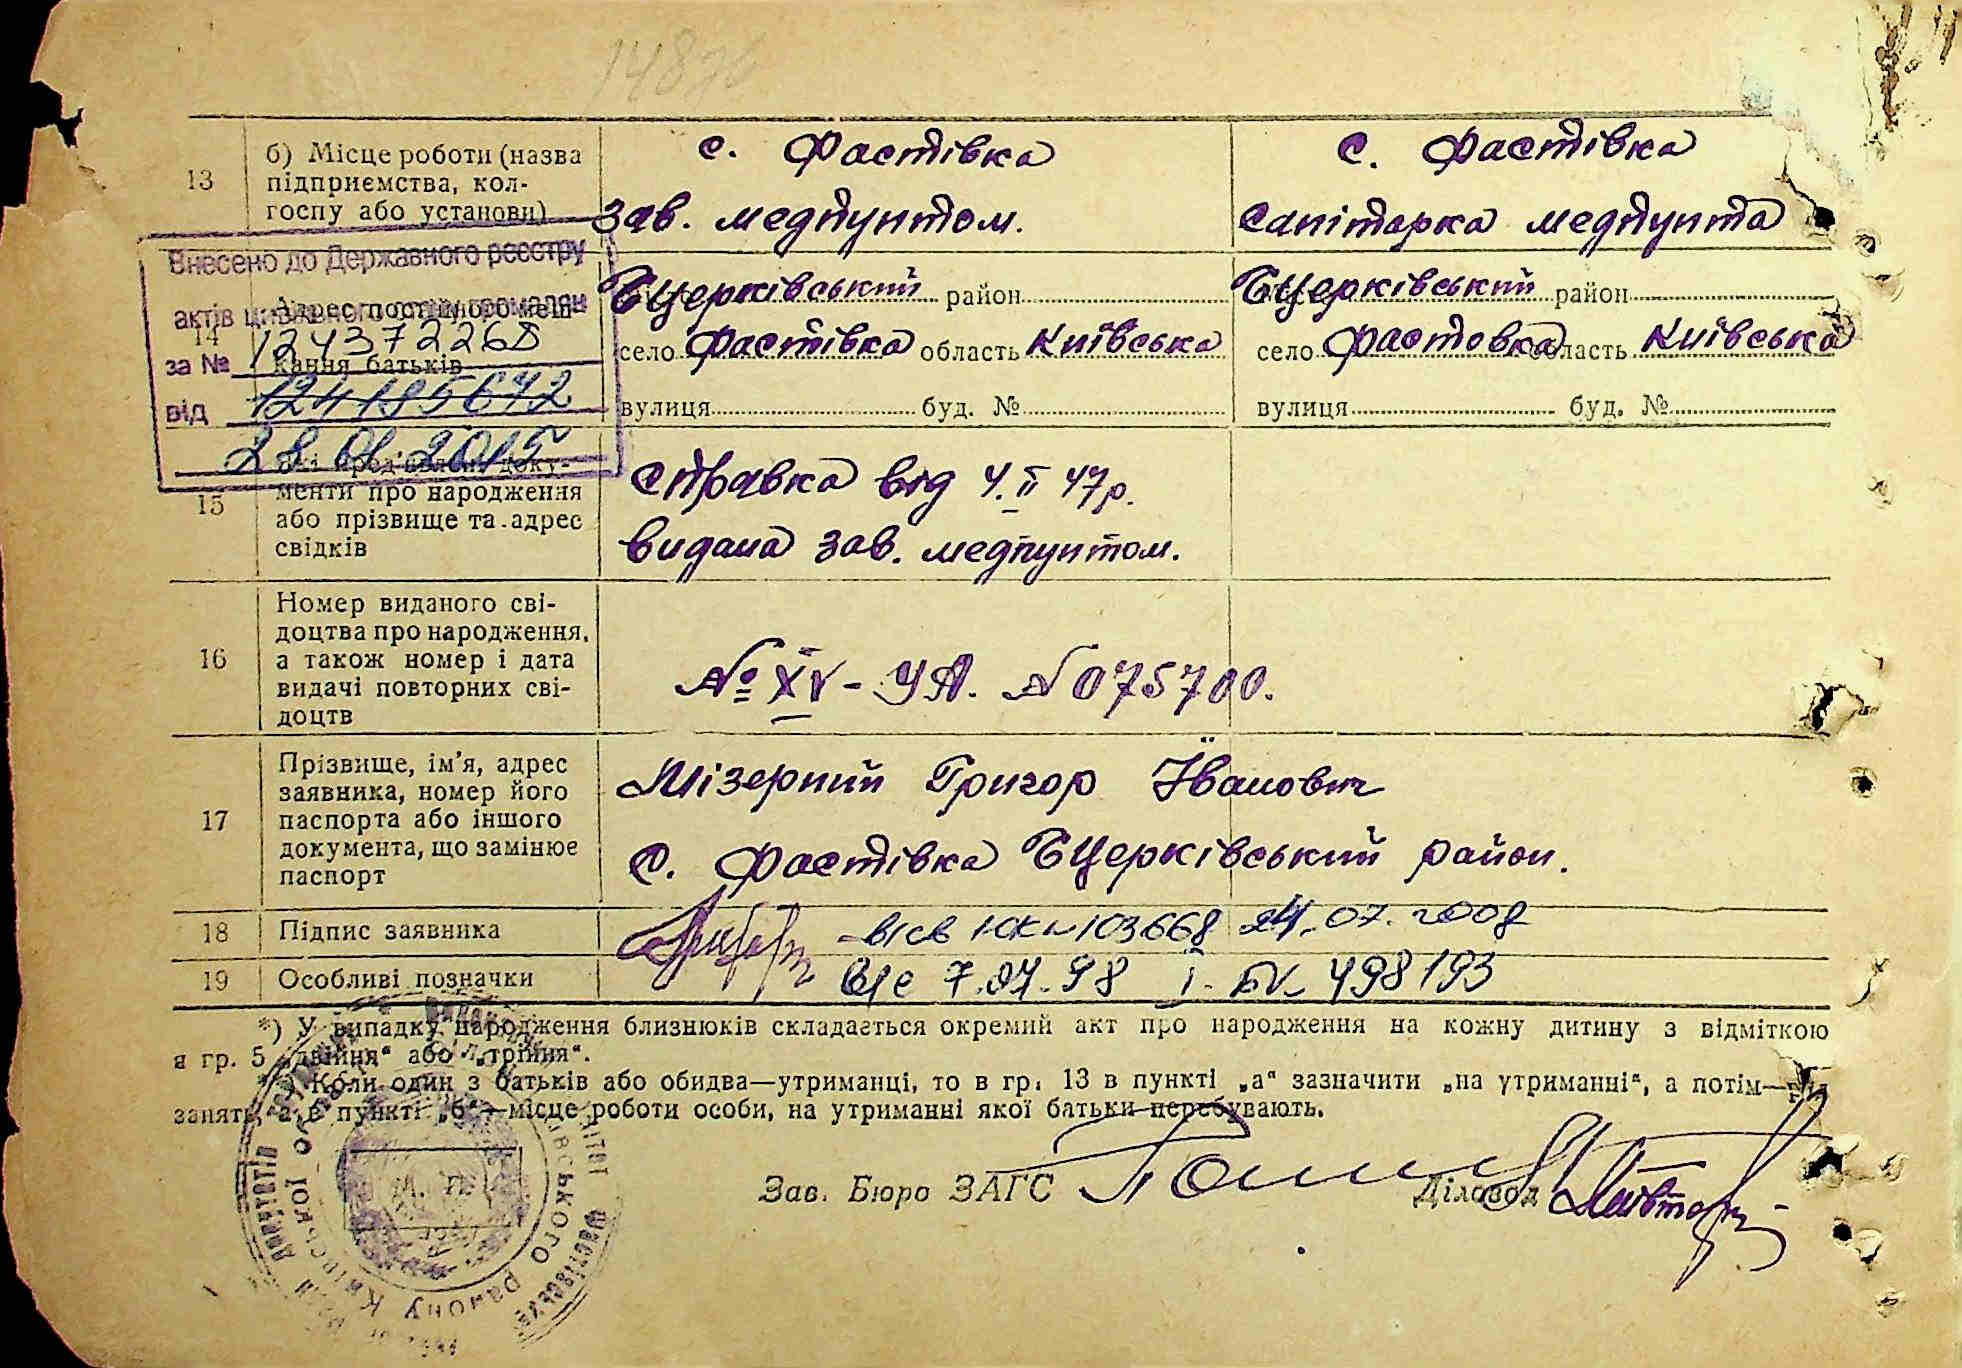 13
б) Місце роботи (назва
підприємства, кол-
госпу або установи)
с. Фастівка
зав. медпунтом.
с. Фастівка
санітарка медпунта
Внесено до Державного реєстру
актів цивільного стану громадян
за № 1243722
від 124195672
28.01.2015
14
Адрес постійного меш-
кання батьків
БЦерківський район
село Фастівка область Київська
вулиця буд. №
БЦерківський район
село Фастовка область Київська
вулиця буд. №
15
менти про народження
або прізвище та адрес
свідків
справка від 4.ІІ 47р.
видана зав. медпунтом.
16
Номер виданого сві-
доцтва про народження,
а також номер і дата
видачі повторних сві-
доцтв
№ XV - УА. N 075700.
17
Прізвище, ім'я, адрес
заявника, номер його
паспорта або іншого
документа, що замінює
паспорт
Мізерний Григор Іванович
с. Фастівка БЦерківський район.
18
Підпис заявника
103668 24.07.2008
19
Особливі позначки
7.07.98 І-БК 498193
*) У випадку народження близнюків складається окремий акт про народження на кожну дитину з відміткою
в гр. 5 „двійня“ або „трійня“.
Коли один з батьків або обидва—утриманці, то в гр. 13 в пункті „а“ зазначити „на утриманні“, а потім—рід
занять, а в пункті „б“—місце роботи особи, на утриманні якої батьки перебувають.
Зав. Бюро ЗАГС
Діловод